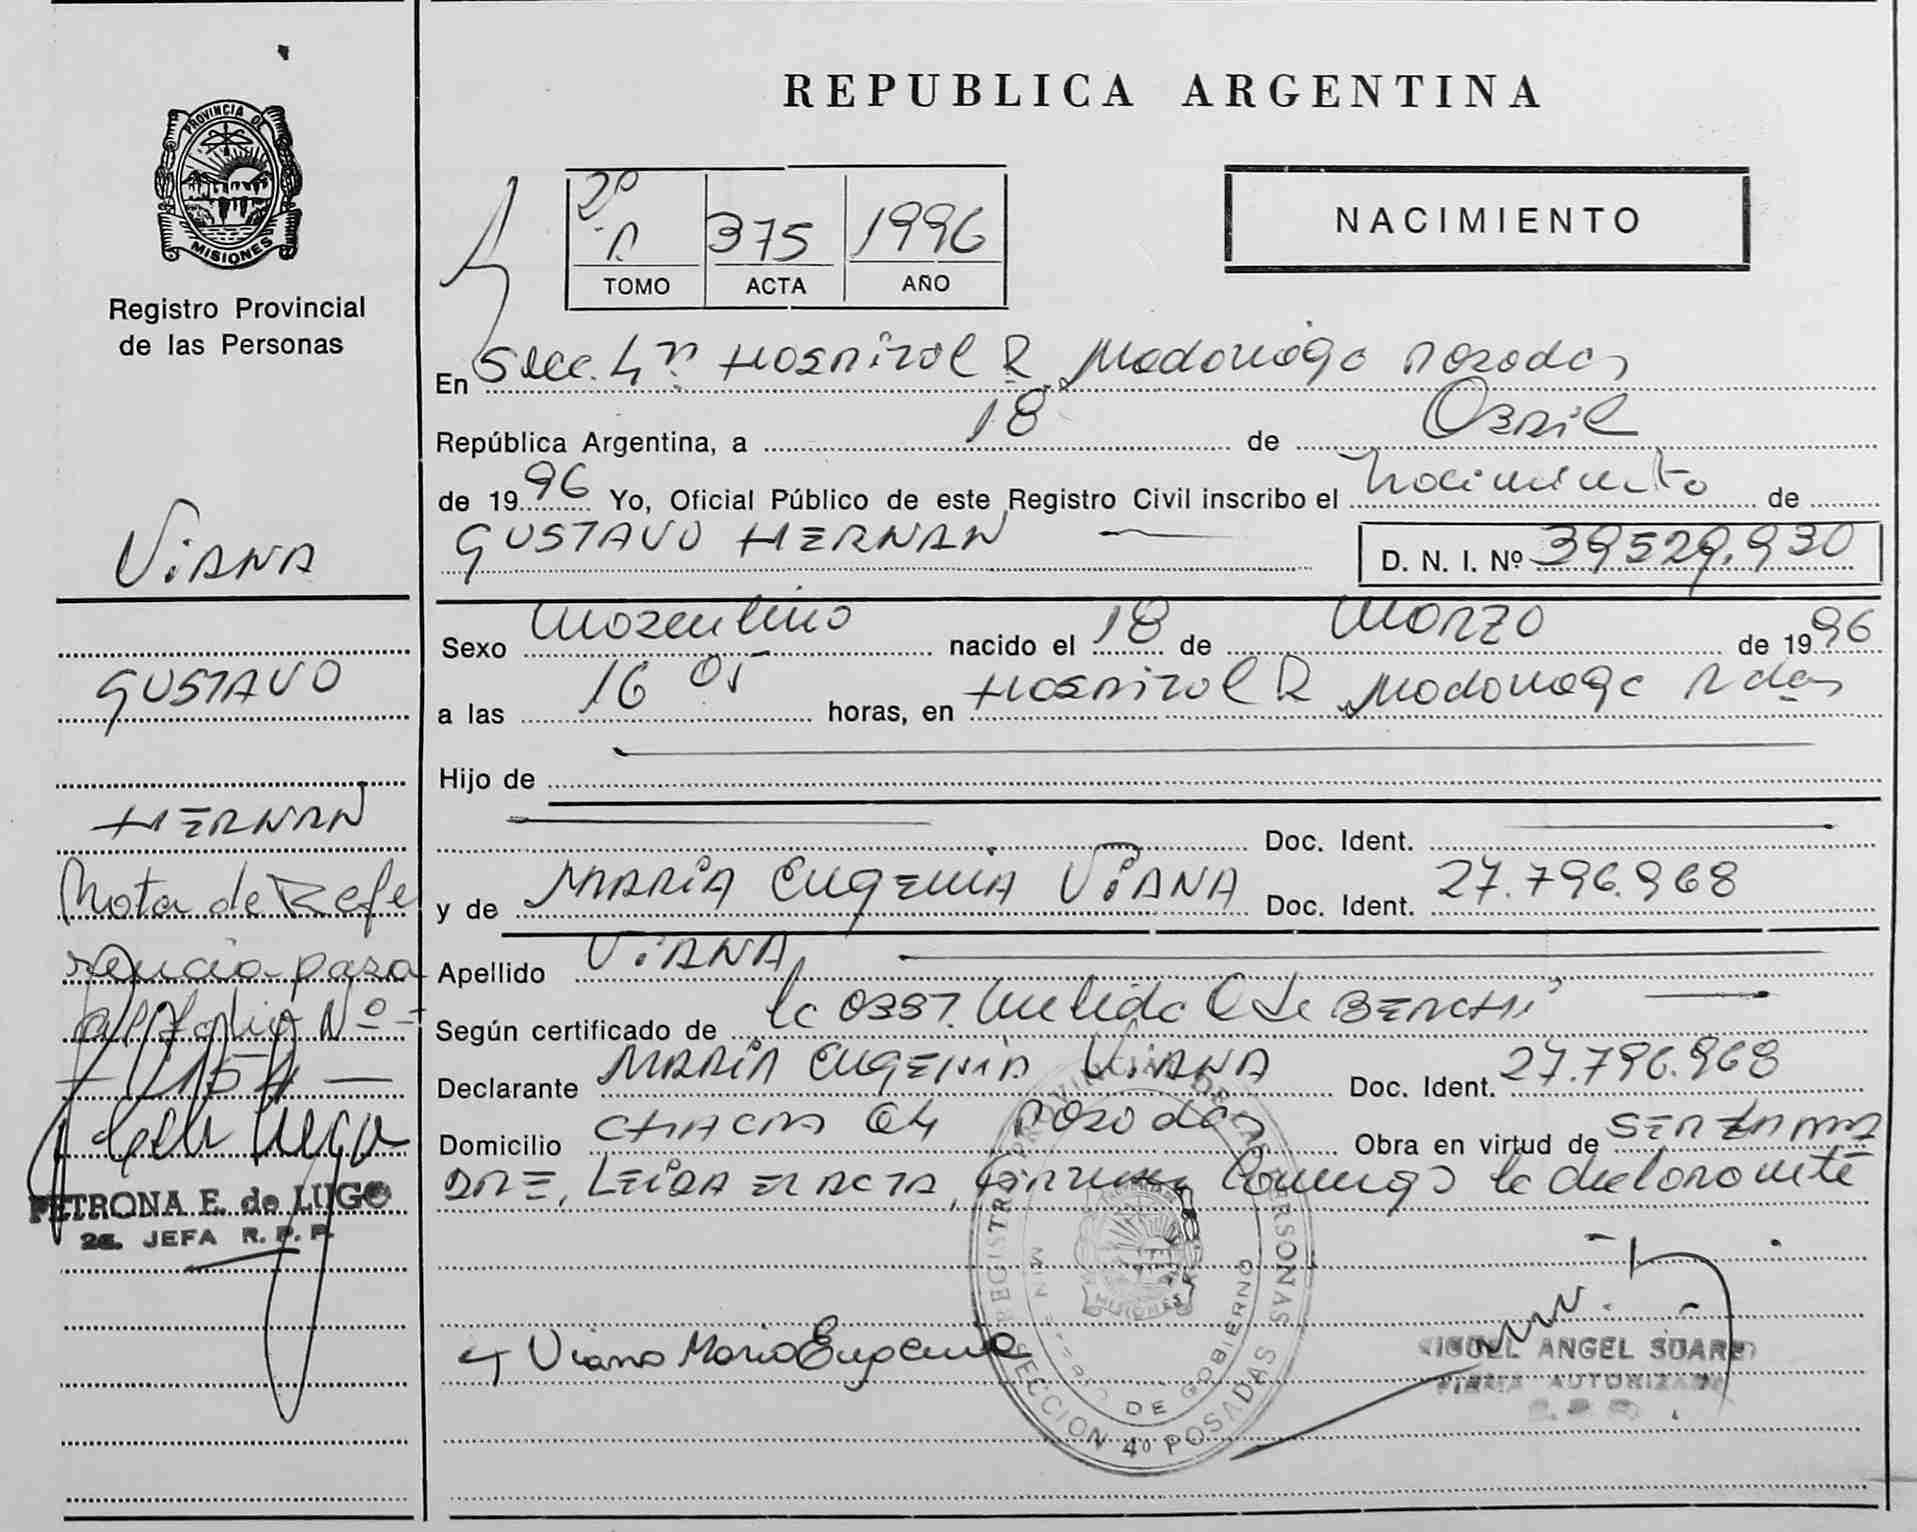 PROVINCIA DE
MISIONES
Registro Provincial
de las Personas
VIANA
GUSTAVO
HERNAN
Nota de Refe
rencia pasa
al Folio Nº
PETRONA E. de LUGO
JEFA R. P. P.
REPUBLICA ARGENTINA
2º 375 1996
TOMO ACTA AÑO
NACIMIENTO
En Secc. 4ª Hospital R. Madariaga Posadas
República Argentina, a 18 de Abril
de 1996 Yo, Oficial Público de este Registro Civil inscribo el Nacimiento de
GUSTAVO HERNAN D. N. I. Nº 39529.930
Sexo Masculino nacido el 18 de Marzo de 1996
a las 16 05 horas, en Hospital R. Madariaga Pdas
Hijo de
Doc. Ident.
y de MARIA EUGENIA VIANA Doc. Ident. 27.796.968
Apellido VIANA
Según certificado de la Obst. Nelida
Declarante MARIA EUGENIA VIANA Doc. Ident. 27.796.968
Domicilio CHACRA 64 Posadas Obra en virtud de SER LA MA
DRE, LEIDA EL ACTA, Firma Conmigo la declarante
Viana Maria Eugenia
REGISTRO PROVINCIAL DE LAS PERSONAS
MINISTERIO DE GOBIERNO
MISIONES
SECCION 4º POSADAS
MIGUEL ANGEL SUAREZ
FIRMA AUTORIZADA